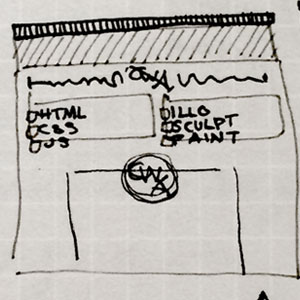 HTML
CSS
JS
ILLO
SCULPT
PAINT